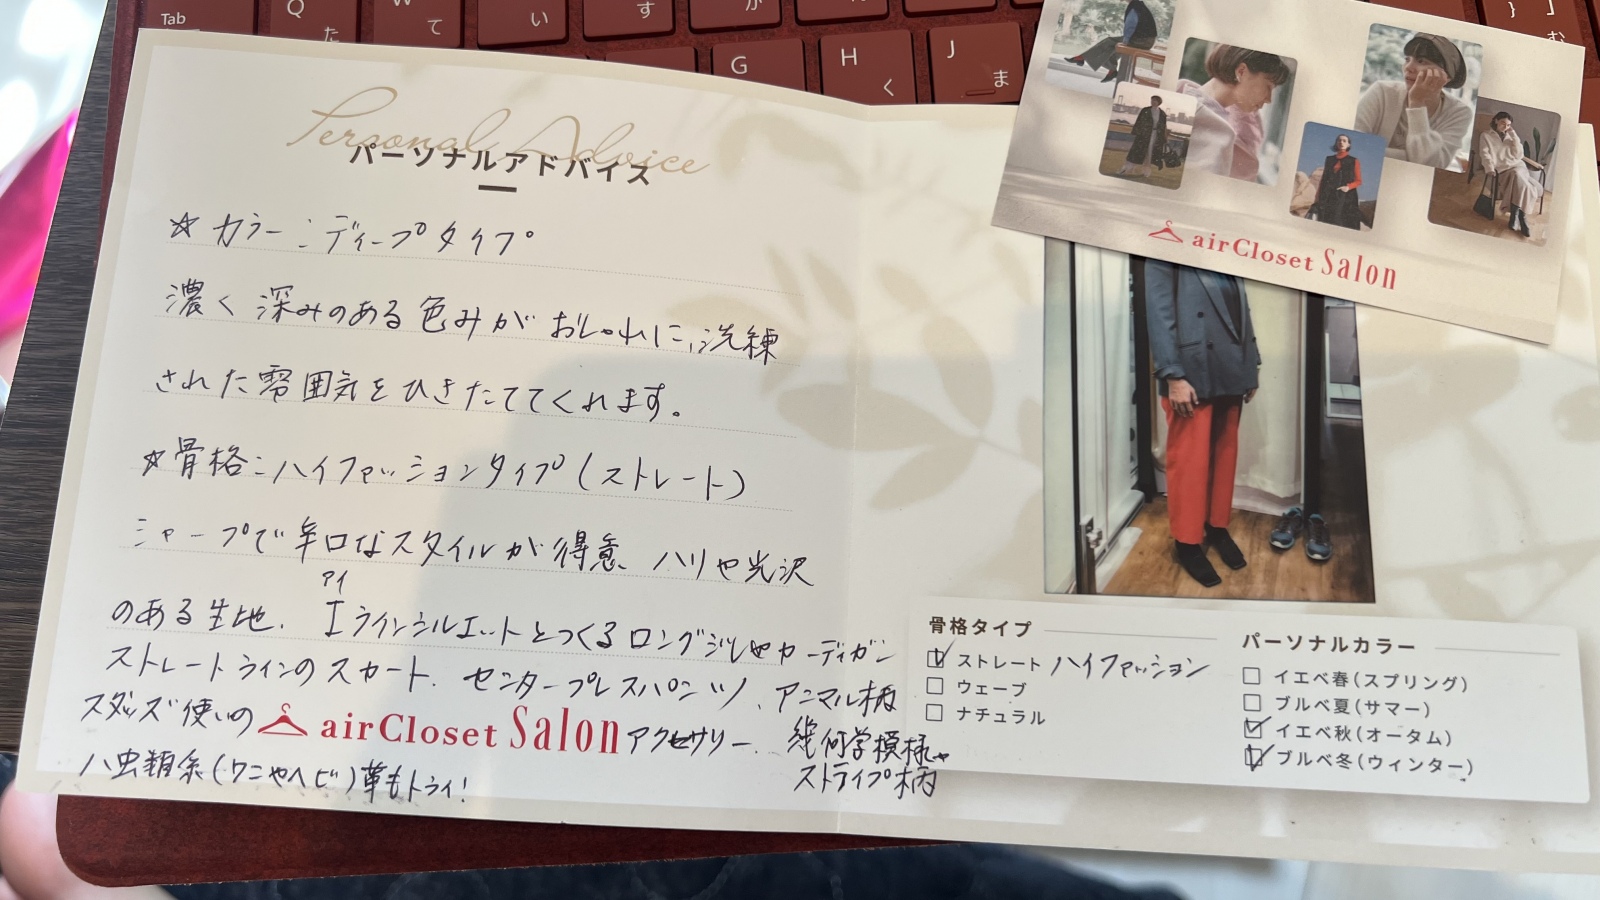 Tab
Q
た
W
て
い
す
か
G
H
く
J
ま
む
Personal Advice
パーソナルアドバイス
☆カラー：ディープタイプ
濃く深みのある色みがおしゃれに、洗練
された雰囲気をひきたててくれます。
☆骨格：ハイファッションタイプ(ストレート)
シャープで辛口なスタイルが得意、ハリや光沢
のある生地、Iラインシルエットとつくるロングジレやカーディガン
アイ
ストレートラインのスカート、センタープレスパンツ、アニマル柄
スタッズ使いの
アクセサリー、幾何学模様や
ストライプ柄
airCloset Salon
ハ虫類系(ワニやヘビ)革もトライ!
airCloset Salon
骨格タイプ
ストレート ハイファッション
ウェーブ
ナチュラル
パーソナルカラー
イエベ春(スプリング)
ブルベ夏(サマー)
イエベ秋(オータム)
ブルベ冬(ウィンター)